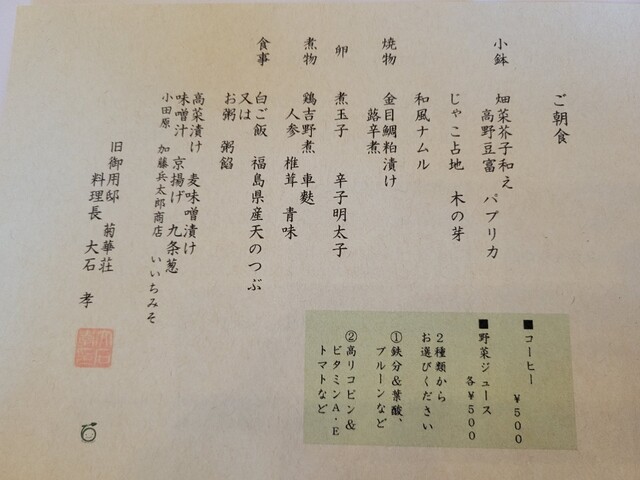 ご朝食
小鉢 畑菜芥子和え
高野豆富 パプリカ
じゃこ占地 木の芽
和風ナムル
焼物 金目鯛粕漬け
蕗辛煮
卵 煮玉子 辛子明太子
煮物 鶏吉野煮 車麩
人参 椎茸 青味
食事 白ご飯 福島県産天のつぶ
又は
お粥 粥餡
高菜漬け 麦味噌漬け
味噌汁 京揚げ 九条葱
小田原 加藤兵太郎商店 いいちみそ
旧御用邸 菊華荘
料理長 大石 孝
■コーヒー ¥500
■野菜ジュース 各¥500
2種類から
お選びください
①鉄分&葉酸、
プルーンなど
②高リコピン&
ビタミンA・E
トマトなど